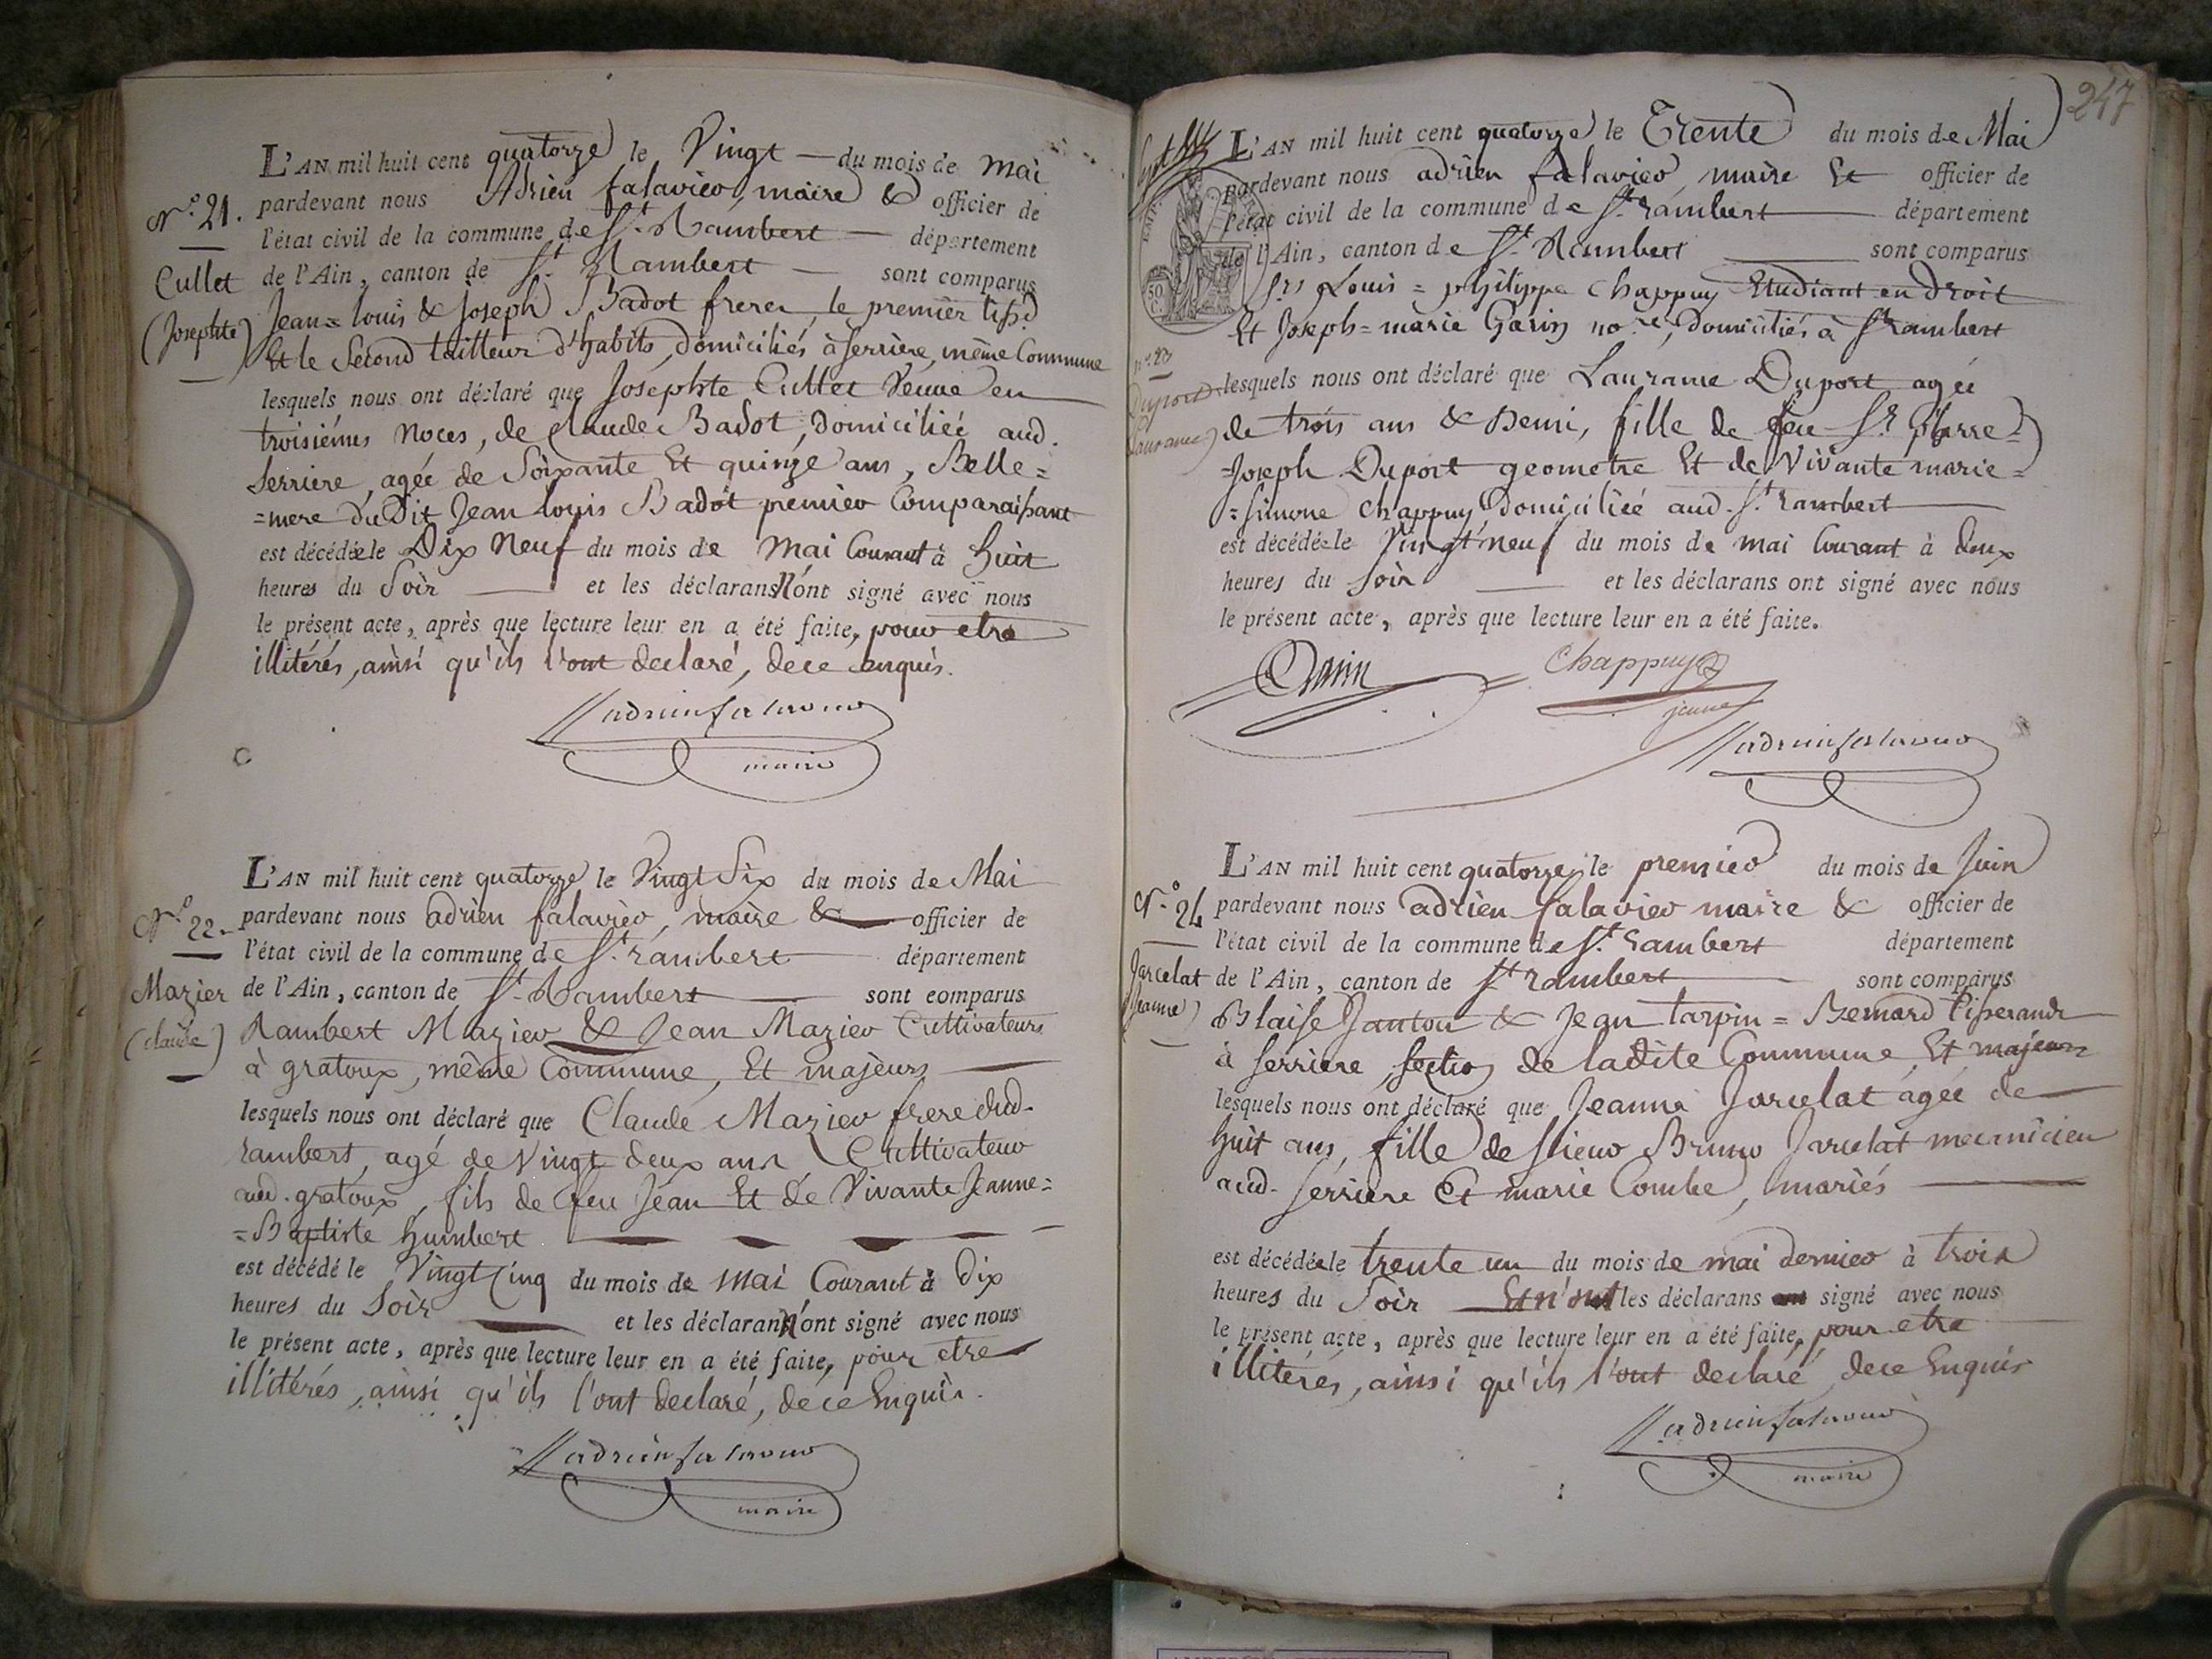 L'AN mil huit cent quatorze le Vingt — du mois de mai
pardevant nous Adrien falavier, maire & officier de
l'état civil de la commune de St. Rambert — département
de l'Ain, canton de St. Rambert — sont comparus
N.o 21.
Cullet
(Josephte)
Jean=louis & joseph Badot freres, le premier tissd
Et le Second tailleur d'habits, domiciliés à serrière, même Commune
lesquels nous ont déclaré que Josephte Cullet Veuve en
troisiémes noces, de Claude Badot, domiciliée aud.
Serriere, agée de Soixante Et quinze ans, Belle=
=mere dudit Jean louis Badot premier Comparaissant
est décédée le Dix Neuf du mois de mai Courant à huit
heures du Soir — et les déclarans N'ont signé avec nous
le présent acte, après que lecture leur en a été faite, pour etre
illitérés, ainsi qu'ils l'ont declaré, de ce enquis.
adrien falavier
maire
L'AN mil huit cent quatorze le Vingt Six du mois de Mai
pardevant nous adrien falavier, maire & officier de
l'état civil de la commune de St. rambert — département
de l'Ain, canton de St. Rambert — sont comparus
N.o 22.
Mazier
(claude)
Rambert Mazier & Jean Mazier Cultivateurs
à gratoux, même Commune, Et majeurs —
lesquels nous ont déclaré que Claude Mazier frere dud.
rambert, agé de Vingt deux ans Cultivateur
aud. gratoux, fils de feu Jean Et de Vivante Jeanne=
=Baptiste humbert —
est décédé le Vingt Cinq du mois de mai Courant à Dix
heures du Soir — et les déclarans N'ont signé avec nous
le présent acte, après que lecture leur en a été faite, pour etre
illitérés, ainsi qu'ils l'ont declaré, de ce Enquis.
adrien falavier
maire
247
L'AN mil huit cent quatorze le Trente du mois de Mai
pardevant nous adrien falavier, maire Et officier de
l'état civil de la commune de St. rambert — département
de l'Ain, canton de St. Rambert — sont comparus
Srs Louis=philippe Chappuy Etudiant en droit
Et Joseph=marie Garin nore, Domiciliés à St rambert
n.o 23
Duport
Lauranne)
lesquels nous ont déclaré que Lauranne Duport agée
de trois ans & Demi, fille de feu Sr. pierre=
=Joseph Duport geometre Et de Vivante marie=
=Simone Chappuy Domiciliée aud. St. rambert
est décédée le Vingt neuf du mois de mai Courant à deux
heures du Soir — et les déclarans ont signé avec nous
le présent acte, après que lecture leur en a été faite.
Garin
Chappuy
jeune
adrien falavier
L'AN mil huit cent quatorze le premier du mois de Juin
pardevant nous adrien falavier maire & officier de
l'état civil de la commune de St. rambert département
de l'Ain, canton de St rambert — sont comparus
N.o 24
Jarcelat
(Jeanne)
Blaise Janton & Jean tarpin=Bernard tisserands
à Serriere, section de ladite Commune, Et majeurs
lesquels nous ont déclaré que Jeanne Jarcelat agée de
huit ans, fille de Sieur Bruno Jarcelat mecanicien
aud. Serriere Et marie Combe, mariés —
est décédée le trente un du mois de mai dernier à trois
heures du Soir — Et n'ont les déclarans signé avec nous
le présent acte, après que lecture leur en a été faite, pour etre
illiterés, ainsi qu'ils l'ont declaré, de ce Enquis
adrien falavier
maire